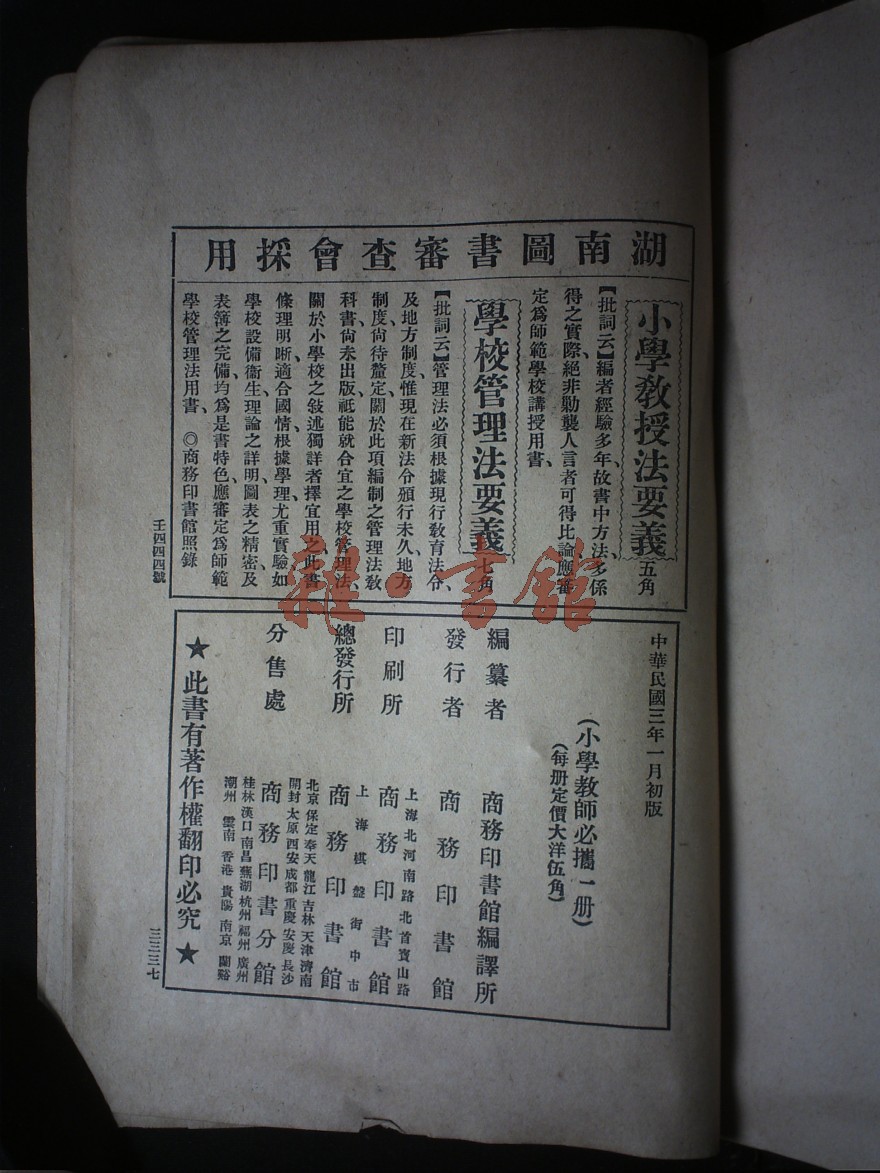 湖南圖書審查會採用
小學教授法要義 五角
【批詞云】編者經驗多年、故書中方法、多係
得之實際、絕非勦襲人言者可得比論、應審
定爲師範學校講授用書、
學校管理法要義 七角
【批詞云】管理法必須根據現行敎育法令、
及地方制度、惟現在新法令頒行未久、地方
制度尙待釐定、關於此項編制之管理法敎
科書尙未出版、祇能就合宜之學校管理法、
關於小學校之敍述獨詳者擇宜用之、此書
條理明晰、適合國情、根據學理、尤重實驗、如
學校設備衞生理論之詳明、圖表之精密、及
表簿之完備、均爲是書特色、應審定爲師範
學校管理法用書、 ◎商務印書館照錄
壬四四四號
中華民國三年一月初版
(小學教師必攜一册)
(每册定價大洋伍角)
編纂者 商務印書館編譯所
發行者 商務印書館
上海北河南路北首寶山路
印刷所 商務印書館
上海棋盤街中市
總發行所 商務印書館
北京 保定 奉天 龍江 吉林 天津 濟南
開封 太原 西安 成都 重慶 安慶 長沙
分售處 商務印書分館
桂林 漢口 南昌 蕪湖 杭州 福州 廣州
潮州 雲南 香港 貴陽 南京 蘭谿
★ 此書有著作權翻印必究 ★
三三三七
雜·書館